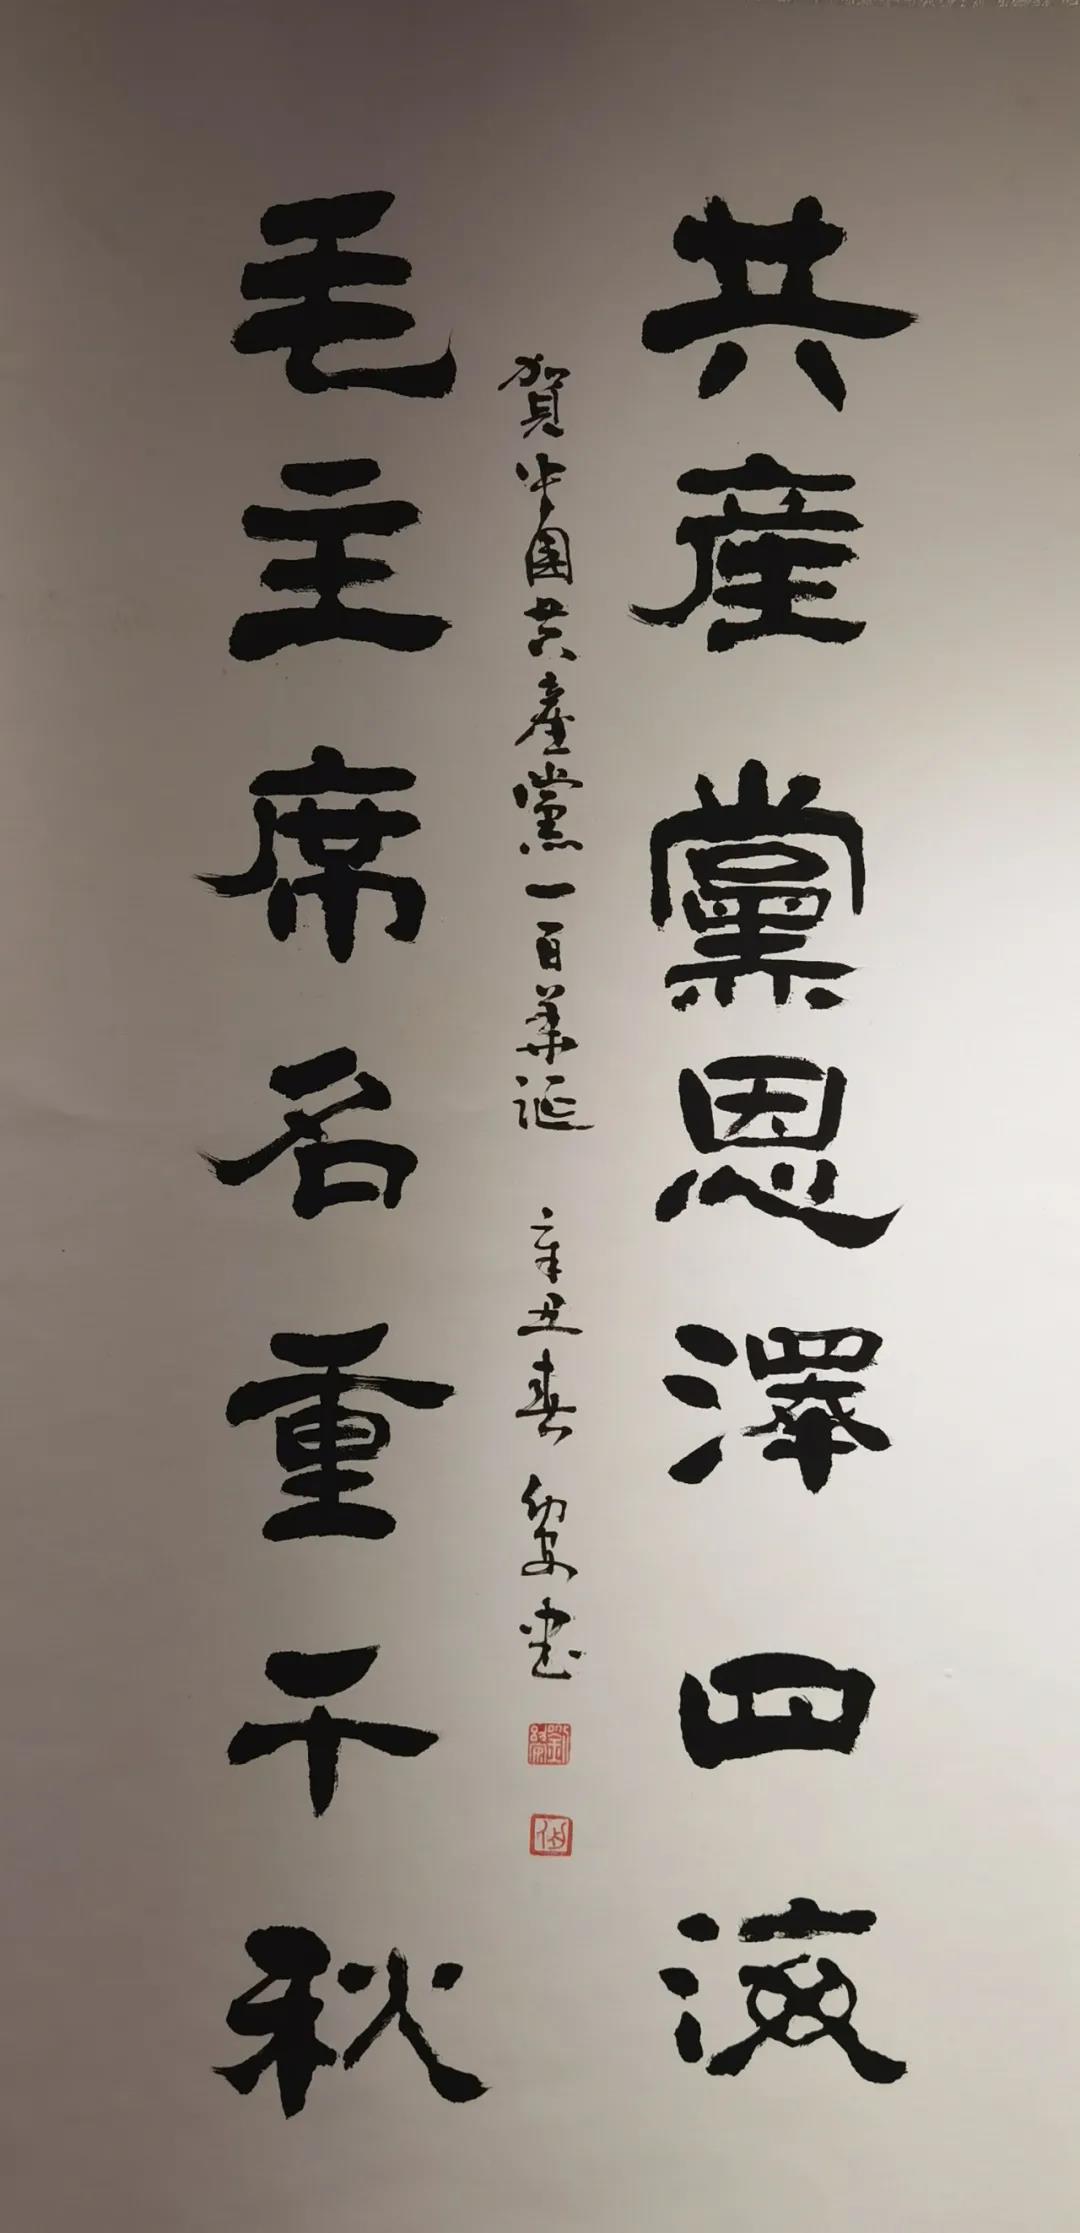 共產黨恩澤四海
賀中國共產黨一百華誕 辛丑春 幼安書
毛主席名重千秋